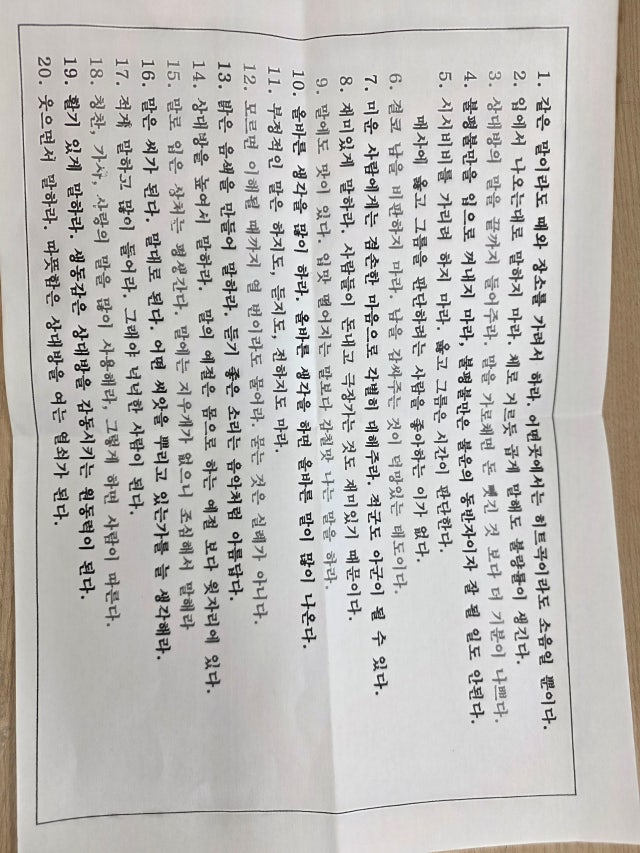 1. 같은 말이라도 때와 장소를 가려서 하라. 어떤곳에서는 히트곡이라도 소음일 뿐이다.
2. 입에서 나오는대로 말하지 마라. 체로 거르듯 곱게 말해도 불량률이 생긴다.
3. 상대방의 말을 끝까지 들어주라. 말을 가로채면 돈 뺏긴 것 보다 더 기분이 나쁘다.
4. 불평불만을 입으로 꺼내지 마라, 불평불만은 불운의 동반자이지 잘 될 일도 안된다.
5. 시시비비를 가리려 하지 마라. 옳고 그름은 시간이 판단한다.
매사에 옳고 그름을 판단하려는 사람을 좋아하는 이가 없다.
6. 결코 남을 비판하지 마라. 남을 감싸주는 것이 덕망있는 태도이다.
7. 미운 사람에게는 겸손한 마음으로 각별히 대해주라. 적군도 아군이 될 수 있다.
8. 재미있게 말하라. 사람들이 돈내고 극장가는 것도 재미있기 때문이다.
9. 말에도 맛이 있다. 입맛 떨어지는 말보다 감칠맛 나는 말을 하라.
10. 올바른 생각을 많이 하라. 올바른 생각을 하면 올바른 말이 많이 나온다.
11. 부정적인 말은 하지도, 듣지도, 전하지도 마라.
12. 모르면 이해될 때까지 열 번이라도 물어라. 묻는 것은 실례가 아니다.
13. 밝은 음색을 만들어 말하라. 듣기 좋은 소리는 음악처럼 아름답다.
14. 상대방을 높여서 말하라. 말의 예절은 몸으로 하는 예절 보다 윗자리에 있다.
15. 말로 입은 상처는 평생간다. 말에는 지우개가 없으니 조심해서 말해라
16. 말은 씨가 된다. 말대로 된다. 어떤 씨앗을 뿌리고 있는가를 늘 생각해라.
17. 적게 말하고 많이 들어라. 그래야 넉넉한 사람이 된다.
18. 칭찬, 감사, 사랑의 말을 많이 사용해라, 그렇게 하면 사람이 따른다.
19. 활기 있게 말하라. 생동감은 상대방을 감동시키는 원동력이 된다.
20. 웃으면서 말하라. 따뜻함은 상대방을 여는 열쇠가 된다.